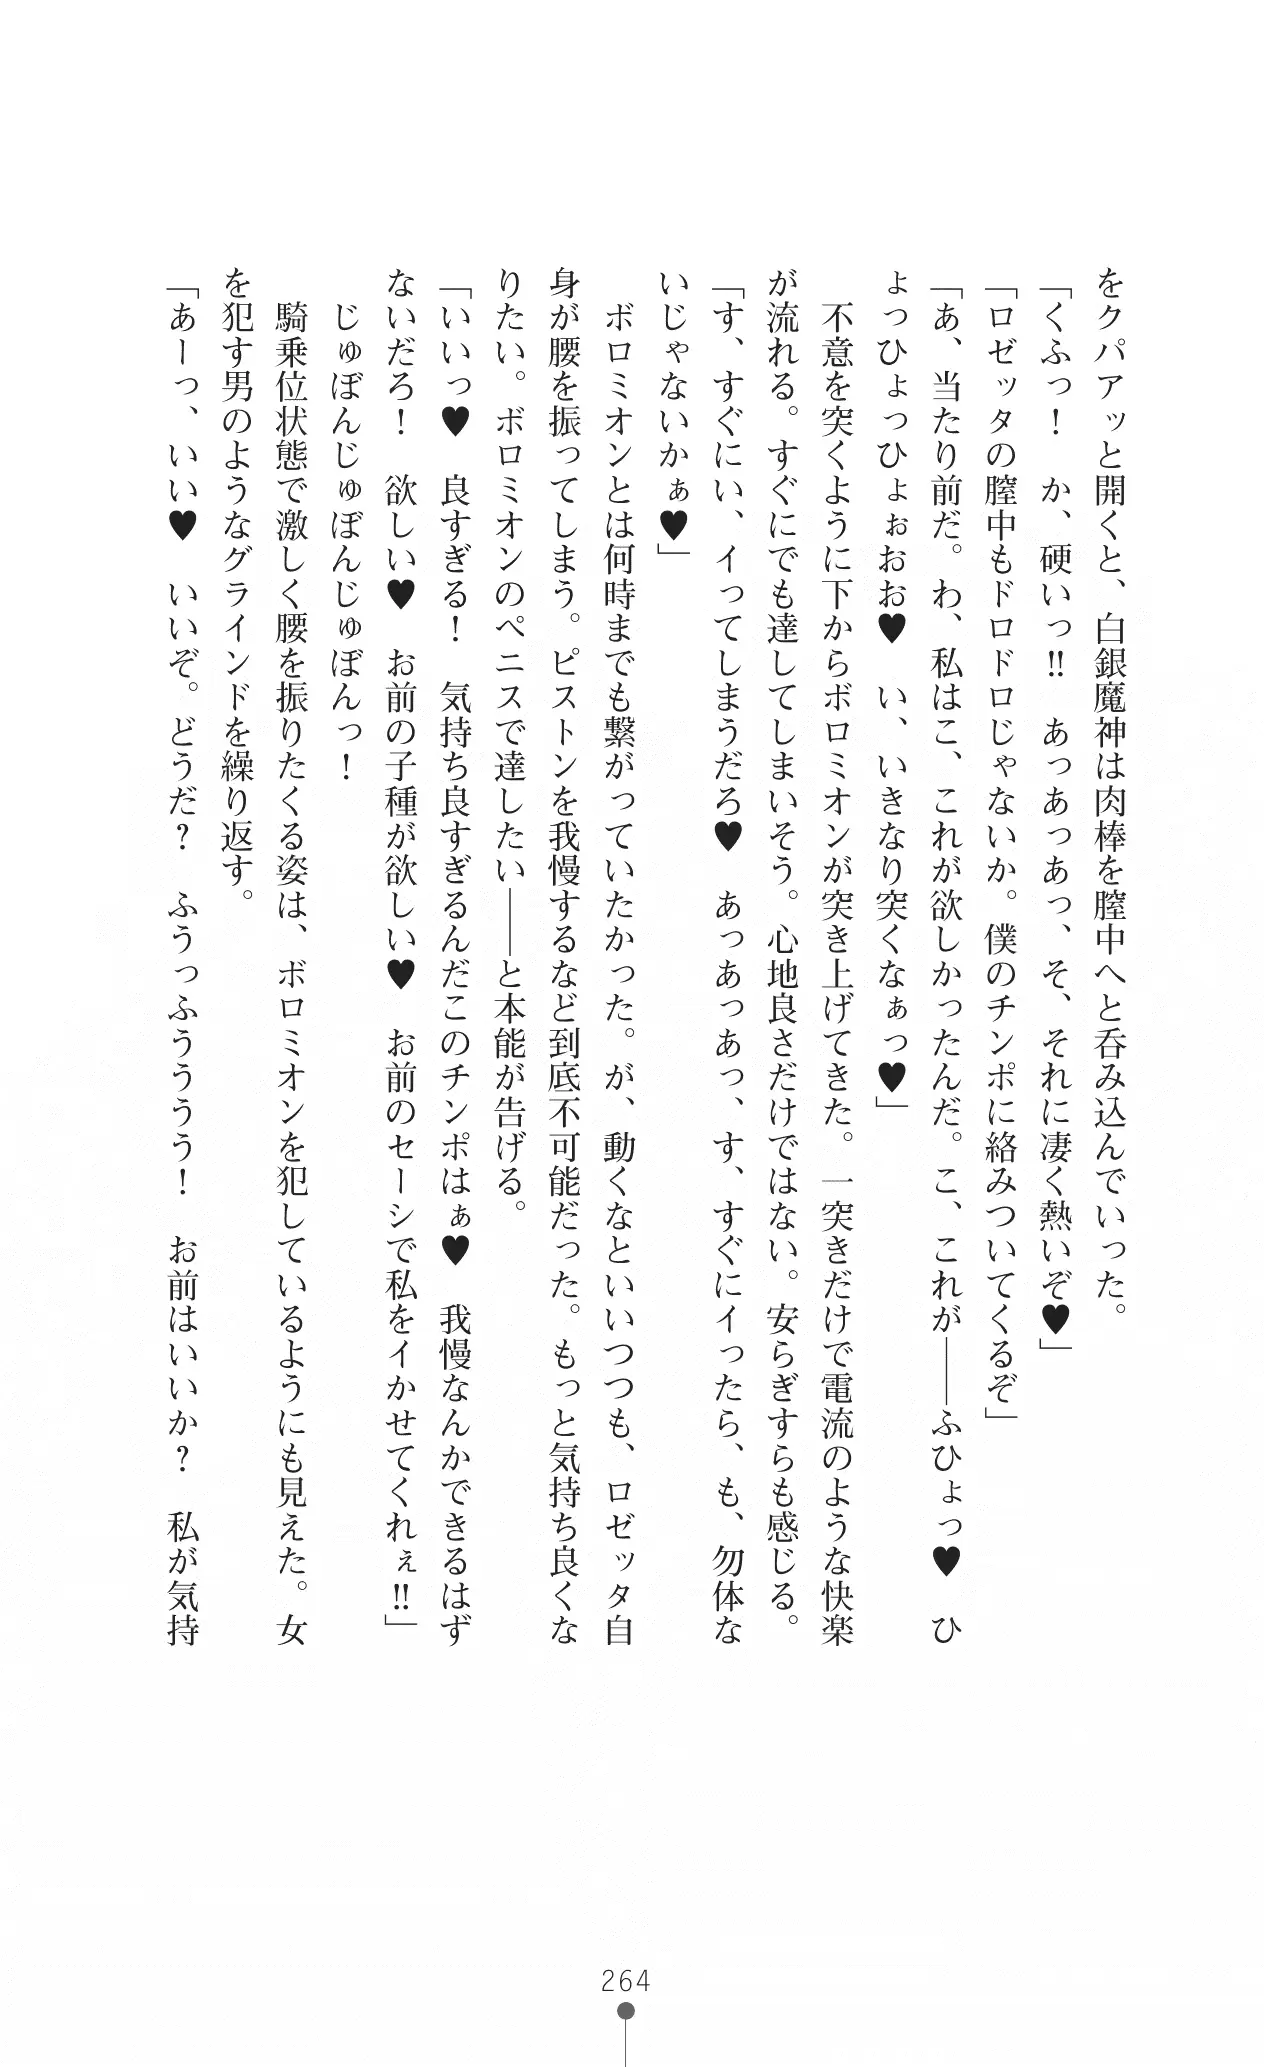 をクパアッと開くと、白銀魔神は肉棒を膣中へと呑み込んでいった。
「くふっ！　か、硬いっ‼　あっあっあっ、そ、それに凄く熱いぞ♥」
「ロゼッタの膣中もドロドロじゃないか。僕のチンポに絡みついてくるぞ」
「あ、当たり前だ。わ、私はこ、これが欲しかったんだ。こ、これが――ふひょっ♥　ひ
ょっひょっひょぉおお♥　い、いきなり突くなぁっ♥」
　不意を突くように下からボロミオンが突き上げてきた。一突きだけで電流のような快楽
が流れる。すぐにでも達してしまいそう。心地良さだけではない。安らぎすらも感じる。
「す、すぐにい、イってしまうだろ♥　あっあっあっ、す、すぐにイったら、も、勿体な
いじゃないかぁ♥」
　ボロミオンとは何時までも繋がっていたかった。が、動くなといいつつも、ロゼッタ自
身が腰を振ってしまう。ピストンを我慢するなど到底不可能だった。もっと気持ち良くな
りたい。ボロミオンのペニスで達したい――と本能が告げる。
「いいっ♥　良すぎる！　気持ち良すぎるんだこのチンポはぁ♥　我慢なんかできるはず
ないだろ！　欲しい♥　お前の子種が欲しい♥　お前のセーシで私をイかせてくれぇ‼」
　じゅぼんじゅぼんじゅぼんっ！
　騎乗位状態で激しく腰を振りたくる姿は、ボロミオンを犯しているようにも見えた。女
を犯す男のようなグラインドを繰り返す。
「あーっ、いい♥　いいぞ。どうだ？　ふうっふうううう！　お前はいいか？　私が気持
264